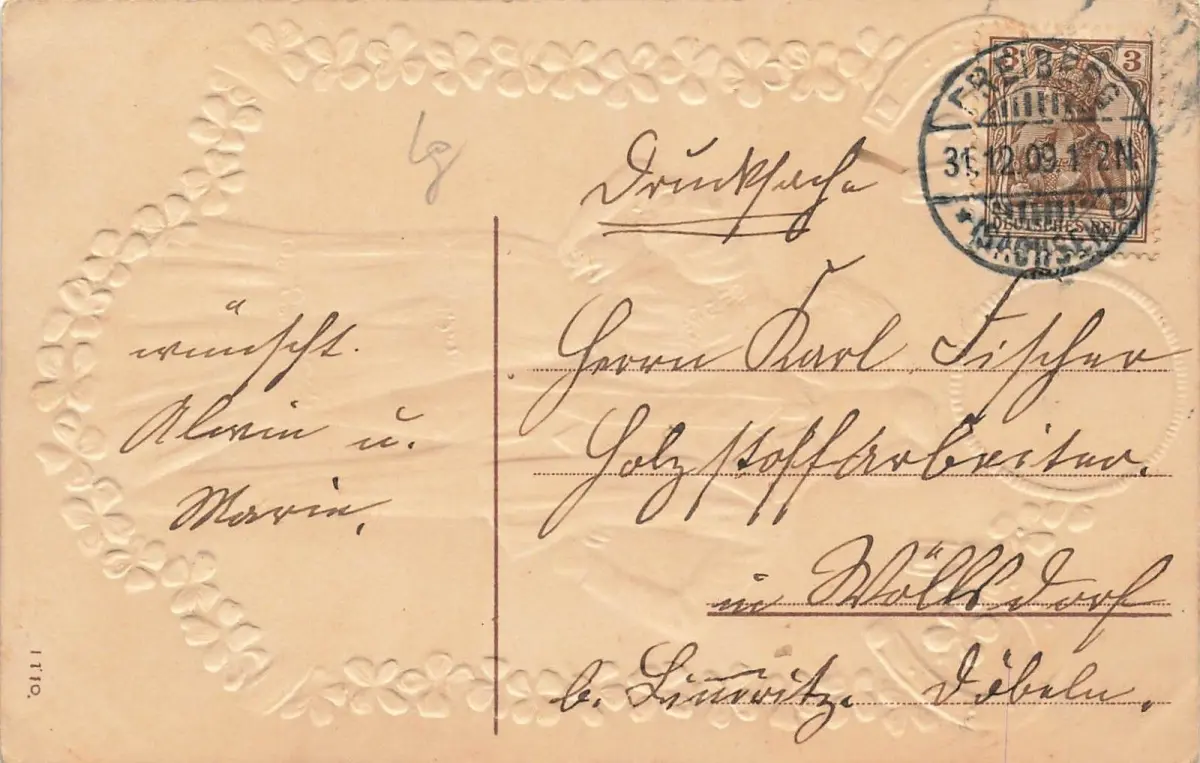 lg
Drucksache
3 3
FREIBERG
31.12.09.1-2N.
* (SACHSEN) C
DEUTSCHES REICH
wünscht.
Alwin u.
Marie.
Herrn Karl Fischer
Holzstoffarbeiter.
in Wöllsdorf
b. Limmritz. Döbeln.
1110.